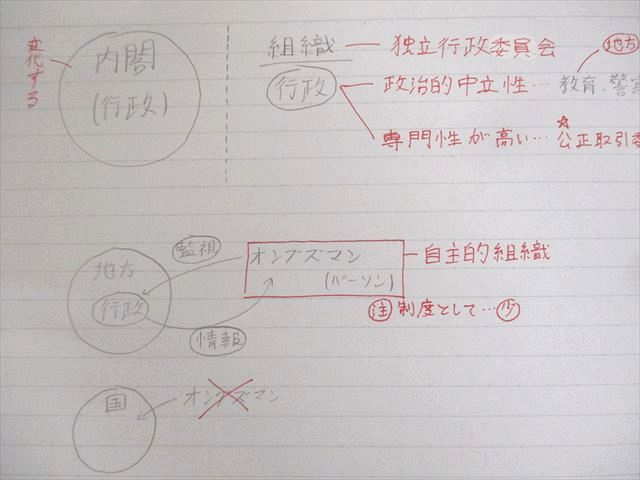 変化する
内閣
(行政)
組織 — 独立行政委員会
行政
政治的中立性… 教育、警察
地方
専門性が高い… ☆公正取引委
監視
オンブズマン
(パーソン)
自主的組織
地方
行政
情報
注 制度として…少
国
オンブズマン